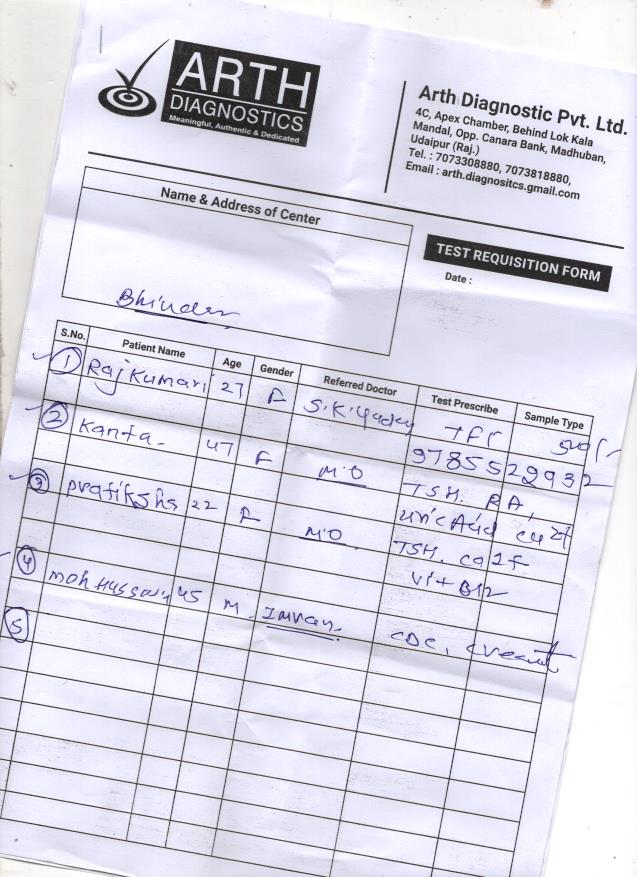 ARTH
DIAGNOSTICS
Meaningful, Authentic & Dedicated
Arth Diagnostic Pvt. Ltd.
4C, Apex Chamber, Behind Lok Kala
Mandal, Opp. Canara Bank, Madhuban,
Udaipur (Raj.)
Tel. : 7073308880, 7073818880,
Email : arth.diagnositcs.gmail.com
Name & Address of Center
TEST REQUISITION FORM
Date :
Bhinder
S.No. Patient Name Age Gender Referred Doctor Test Prescribe Sample Type
1 Rajkumari 27 F S.K.Yadav
9785522932
2 Kanta- 47 F M.O TSH. RA,
uric Acid
3 pratiksha 22 F M.O TSH.
Vit B12
4 moh Hussain 45 M. Imran. CBC,
5